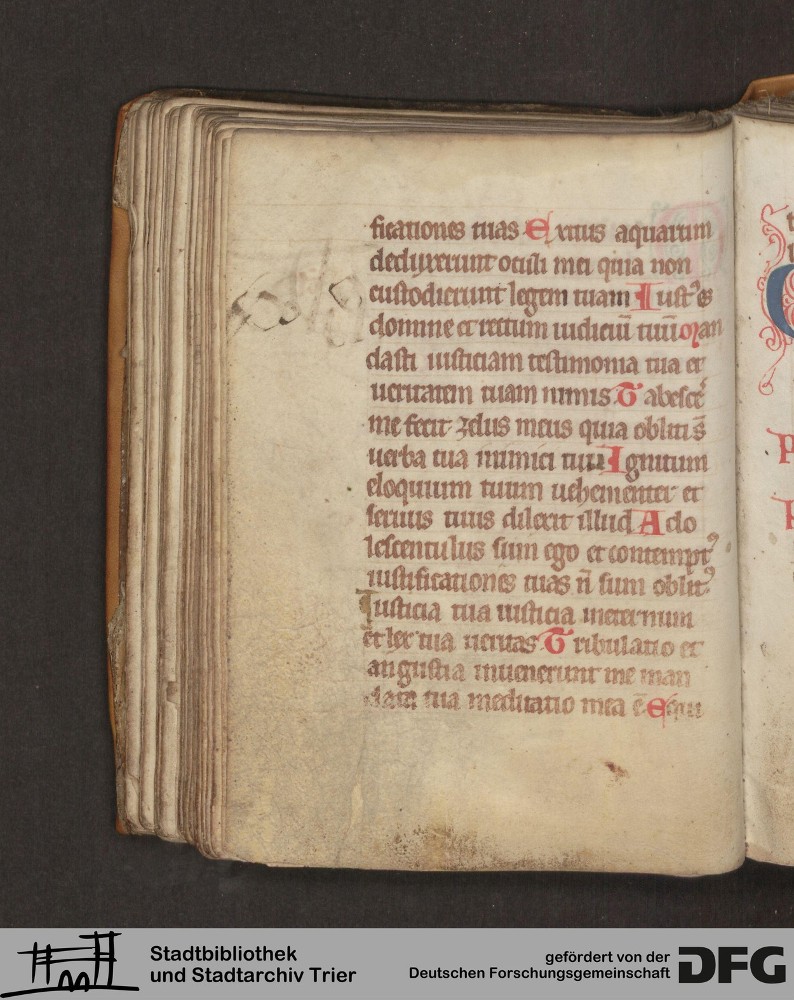 ficationes tuas Exitus aquarum
deduxerunt oculi mei quia non
custodierunt legem tuam Iustꝰ es
domine et rectum iudiciū tuū oran
dasti iusticiam testimonia tua et
ueritatem tuam nimis Tabescē
me fecit zelus meus quia obliti s̄
uerba tua inimici tui Ignitum
eloquium tuum uehementer et
seruus tuus dilexit illud Ado
lescentulus sum ego et contemptꝰ
iustificationes tuas n̄ sum oblitꝰ
Iusticia tua iusticia ineternum
et lex tua ueritas Tribulatio et
angustia inuenerunt me man
data tua meditatio mea ē Equi
P
Stadtbibliothek
und Stadtarchiv Trier
gefördert von der
Deutschen Forschungsgemeinschaft
DFG